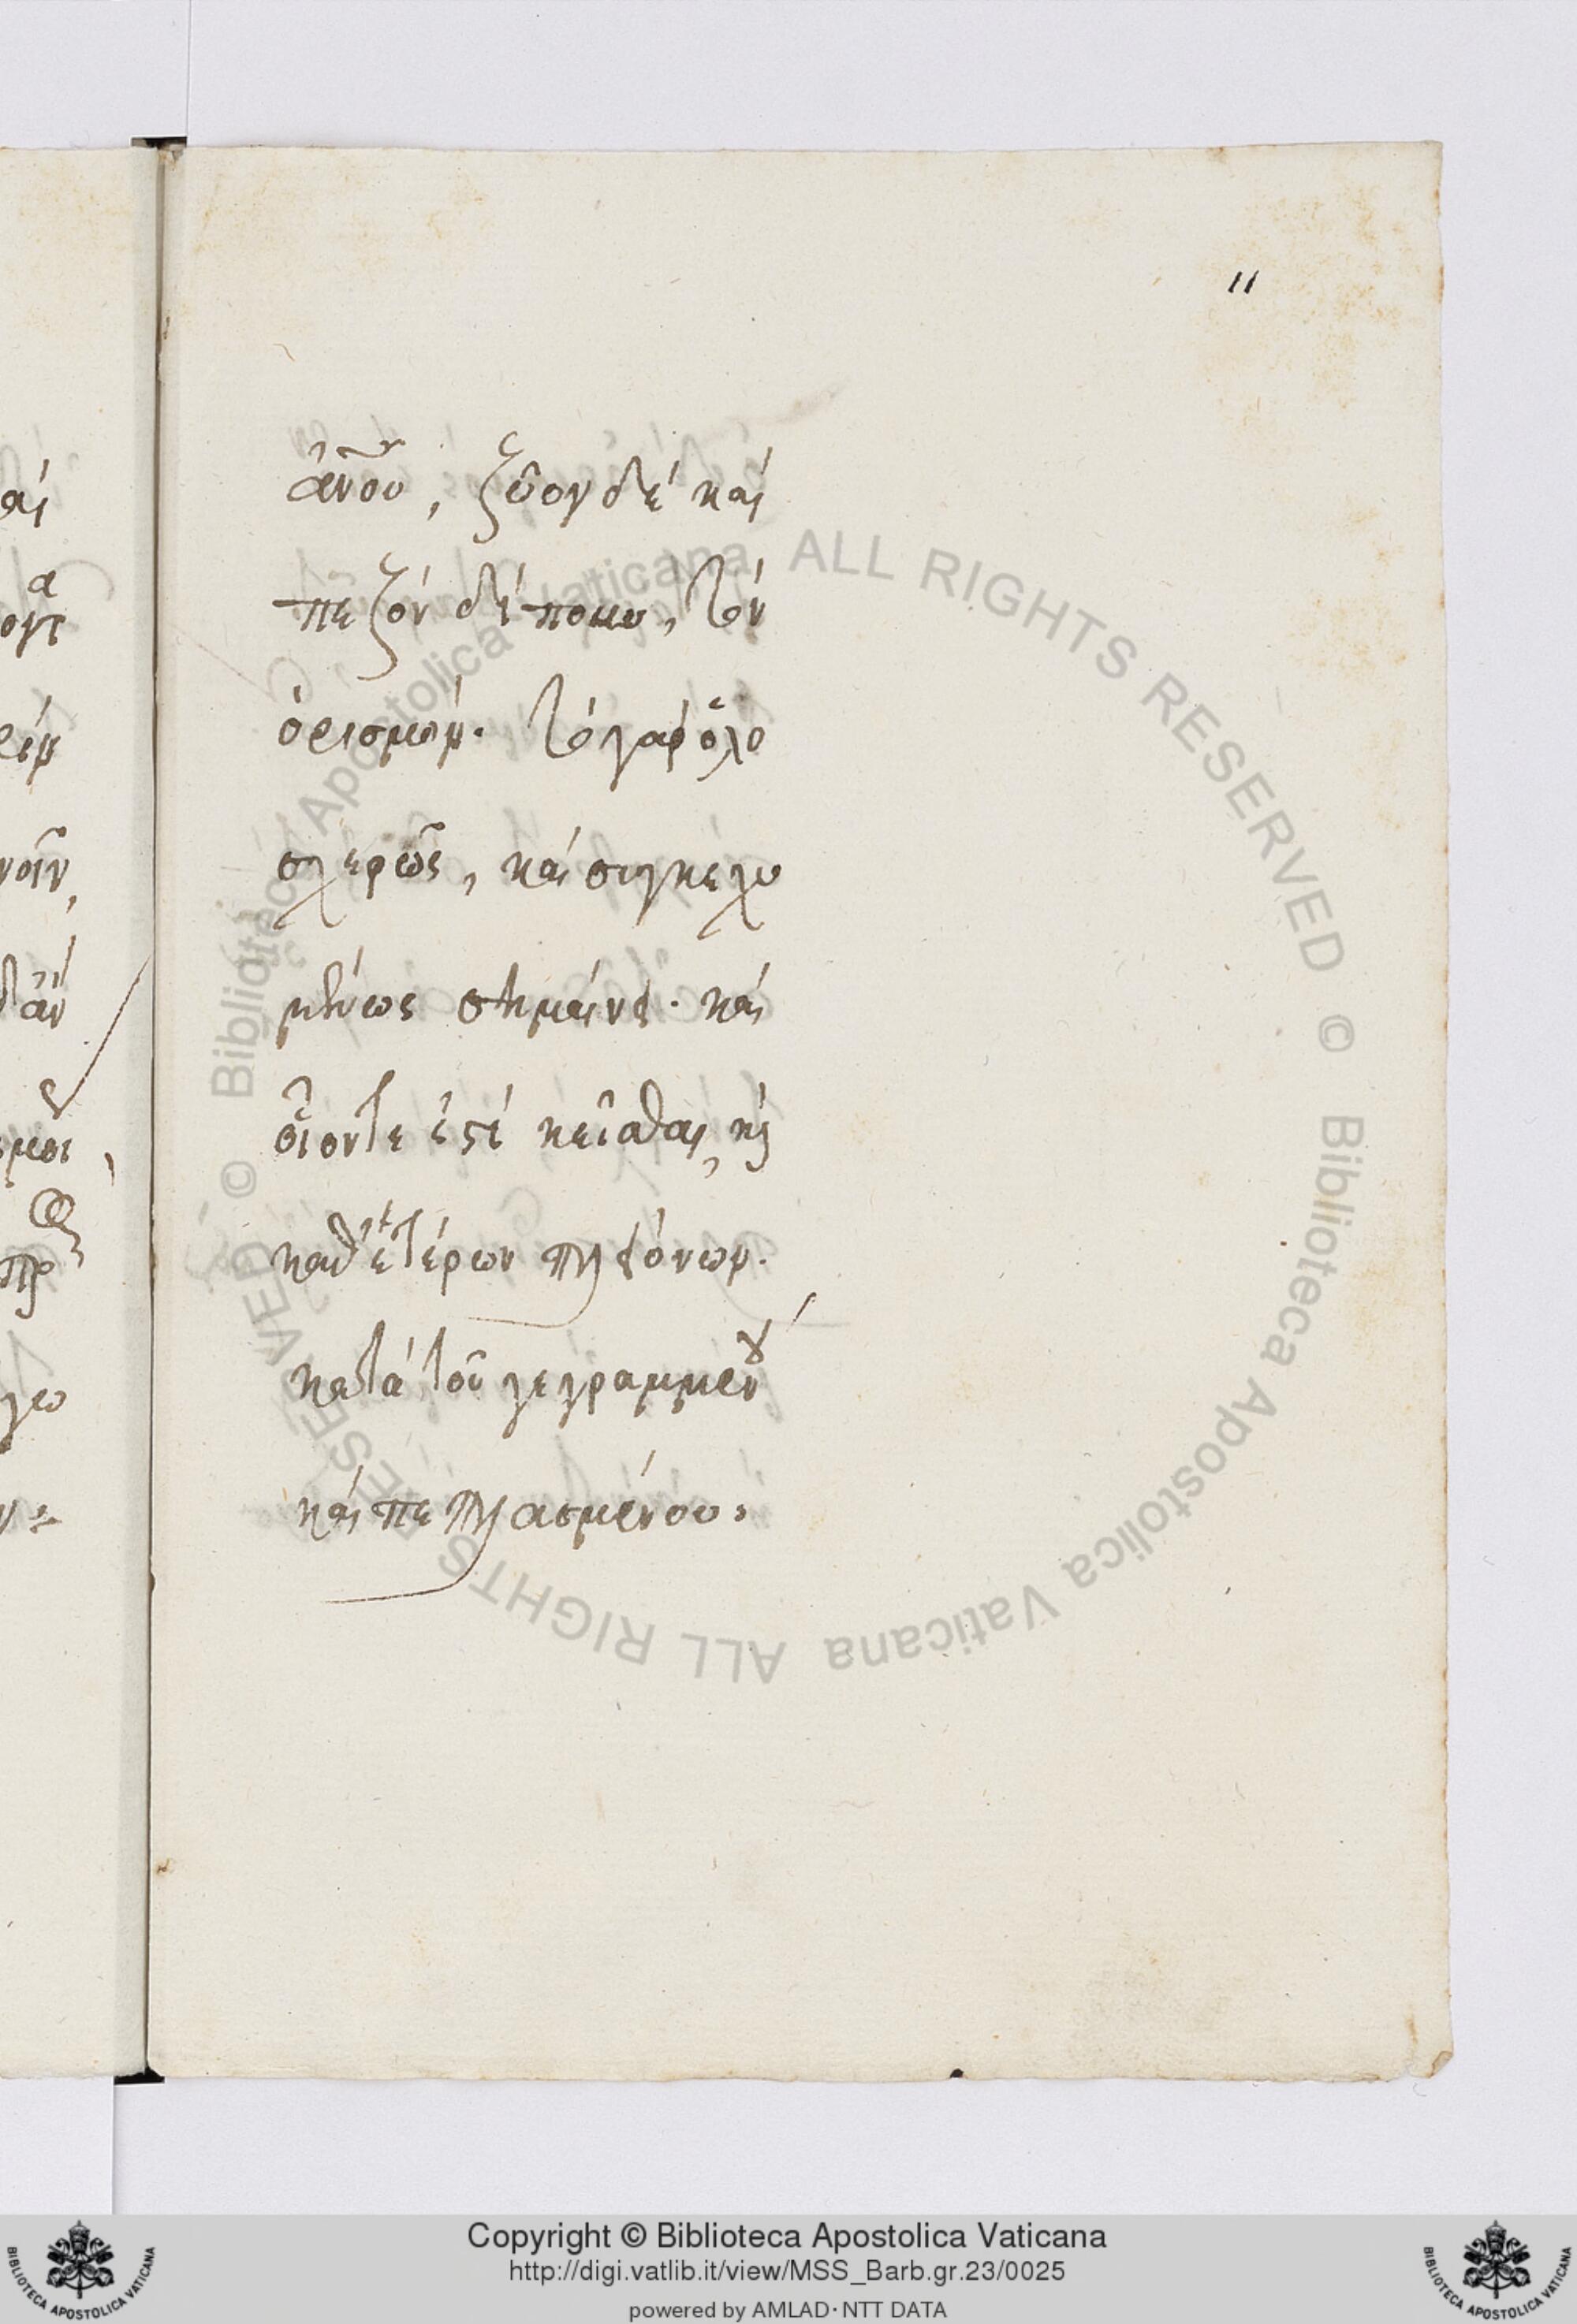 11
ἀν̅ου, ζῶον δὲ καὶ
πεζὸν δίπουν, τὸν
ὁρισμόν. τὸ γὰρ ὁλο
σχερῶς, καὶ συγκεχυ
μένως σημαίνει. καὶ
οἷόντε ἐστὶ κεῖσθαι, κỳ
καθ' ἑτέρων πλειόνων.
κατὰ τοῦ γεγραμμένου
καὶ πεπλασμένου.
Biblioteca Apostolica Vaticana ALL RIGHTS RESERVED © Biblioteca Apostolica Vaticana ALL RIGHTS RESERVED ©
Copyright © Biblioteca Apostolica Vaticana
http://digi.vatlib.it/view/MSS_Barb.gr.23/0025
powered by AMLAD·NTT DATA
BIBLIOTECA APOSTOLICA VATICANA
BIBLIOTECA APOSTOLICA VATICANA